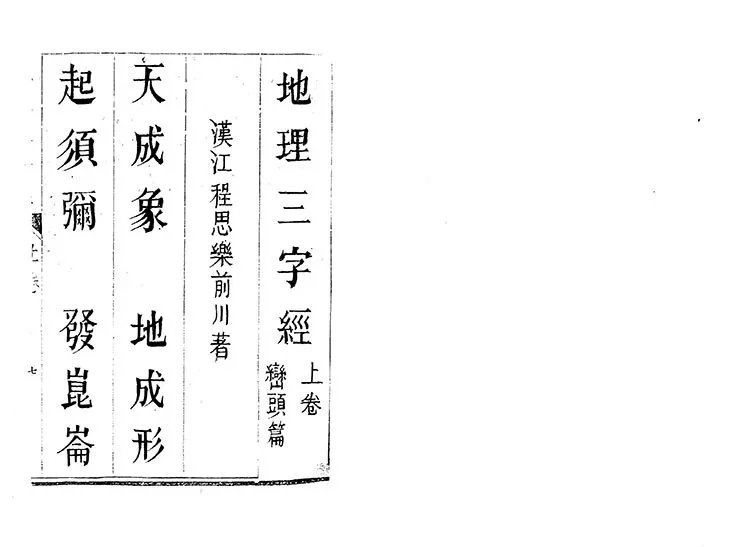 地理三字經
上卷
巒頭篇
漢江程思樂前川著
天成象 地成形
起須彌 發崑崙
上卷
七